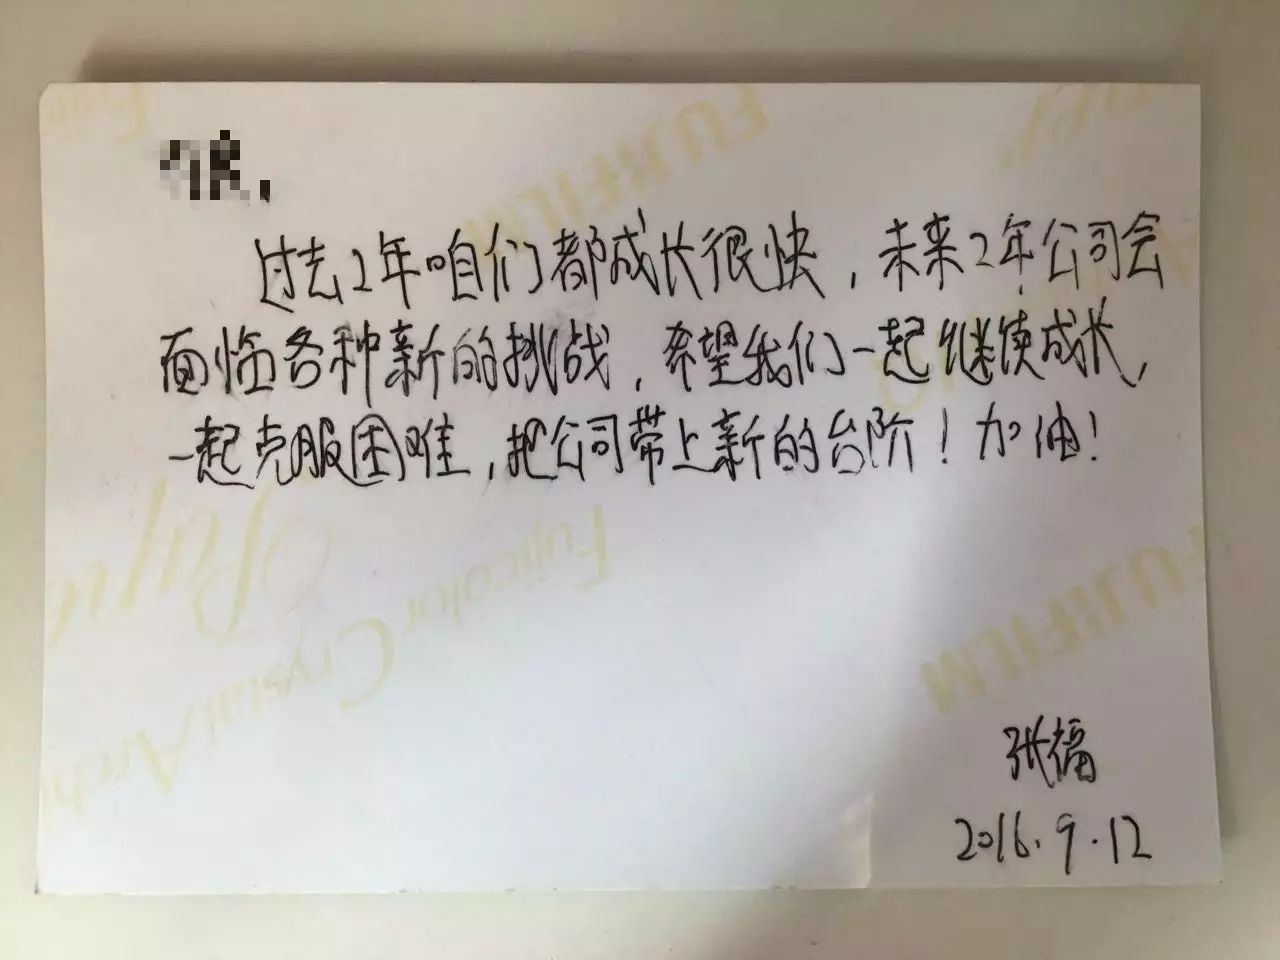 过去2年咱们都成长很快，未来2年公司会
面临各种新的挑战，希望我们一起继续成长，
一起克服困难，把公司带上新的台阶！加油！
张福
2016.9.12
FUJIFILM
Fujicolor Crystal Arch
Pape
FUJIFILM